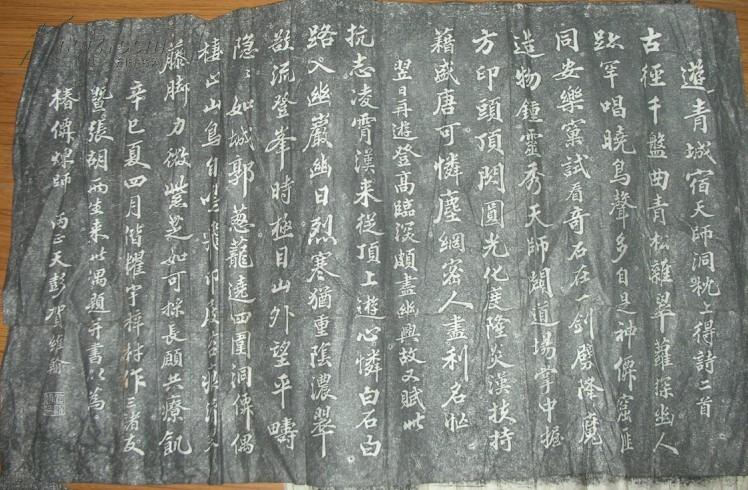 遊青城宿天師洞枕上得詩二首
古徑千盤曲青松雜翠蘿探幽人
跡罕唱曉鳥聲多自是神僊窟
同安樂窩試看奇石在一劍劈降魔
造物鍾靈秀天師闢道場掌中握
方印頭頂閃圓光化奠隆炎漢扶持
藉盛唐可憐塵網密人盡利名忙
翌日再遊登高臨深頗盡幽興故又賦此
抗志凌霄漢来從頂上遊心憐白石白
路入幽巖幽日烈寒猶重陰濃翠
欲流登峯時極目山外望平疇
隐隐如城郭蔥蘢遠四圍洞僊偶
棲此山鳥自
藤脚力微紫芝如可採長願共療飢
辛巳夏四月偕燿宇梓材作三諸友
暨張胡兩生来此偶題并書以為
椿僊煉師 丙正天彭賀維翰